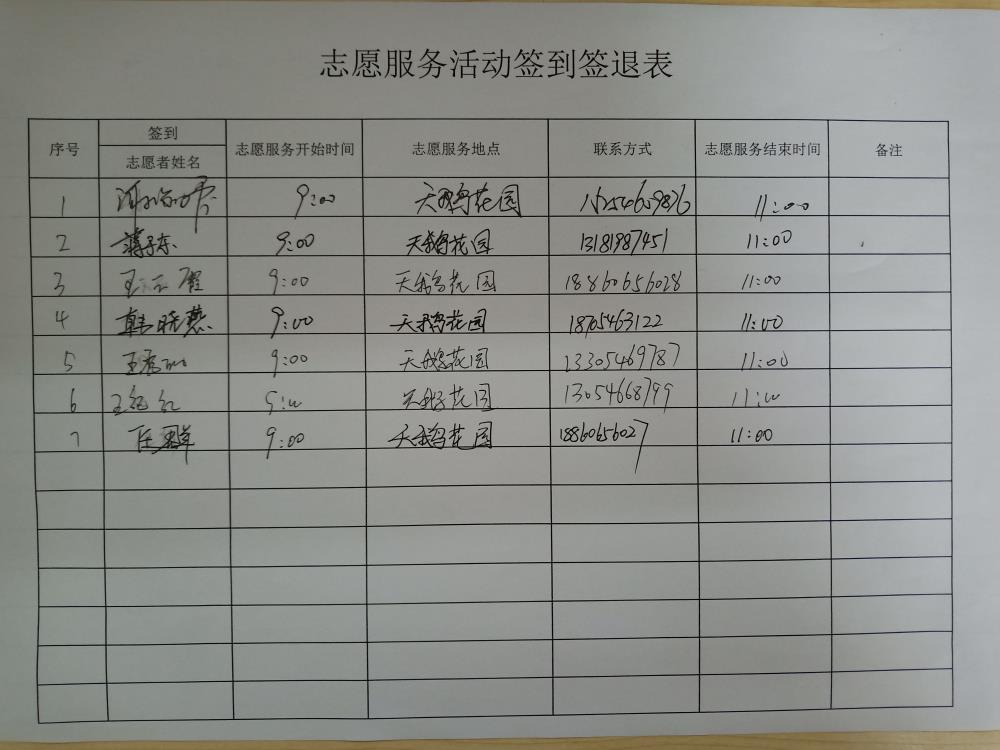 志愿服务活动签到签退表
序号 签到 志愿者姓名 志愿服务开始时间 志愿服务地点 联系方式 志愿服务结束时间 备注
1 9:00 天鹅花园 11:00
2 9:00 天鹅花园 13181987451 11:00
3 9:00 天鹅花园 18860656028 11:00
4 韩晓燕 9:00 天鹅花园 18705463122 11:00
5 9:00 天鹅花园 13305469787 11:00
6 9:00 天鹅花园 13054668799 11:00
7 任翠 9:00 天鹅花园 18860656027 11:00